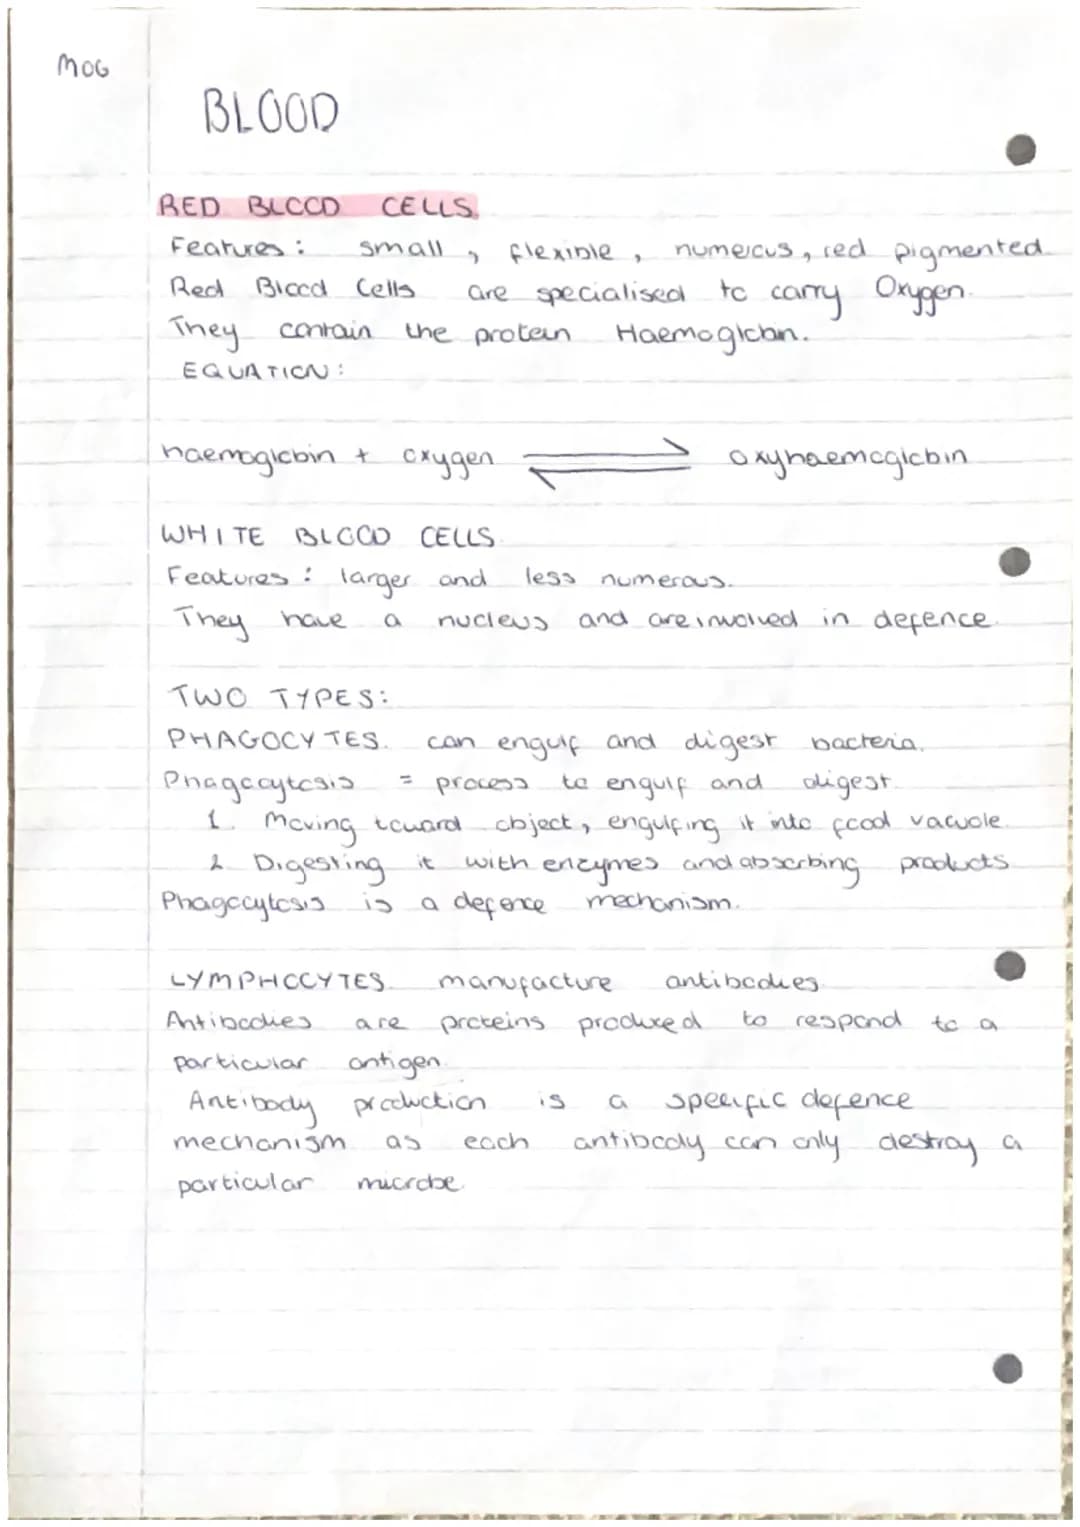 MOG
BLOOD
RED BLOOD CELLS.
Features: small, flexible, numerous, red pigmented.
Red Blood Cells are specialised to carry Oxygen.
They contain the protein Haemoglobin.
EQUATION:
haemoglobin + oxygen ⇌ oxyhaemoglobin
WHITE BLOOD CELLS.
Features: larger and less numerous.
They have a nucleus and are involved in defence.
TWO TYPES:
PHAGOCYTES. can engulf and digest bacteria.
Phagocytosis = process to engulf and digest.
1. Moving toward object, engulfing it into food vacuole.
2. Digesting it with enzymes and absorbing products
Phagocytosis is a defence mechanism.
LYMPHOCYTES. manufacture antibodies.
Antibodies are proteins produced to respond to a
particular antigen.
Antibody production is a specific defence
mechanism as each antibody can only destroy a
particular microbe.